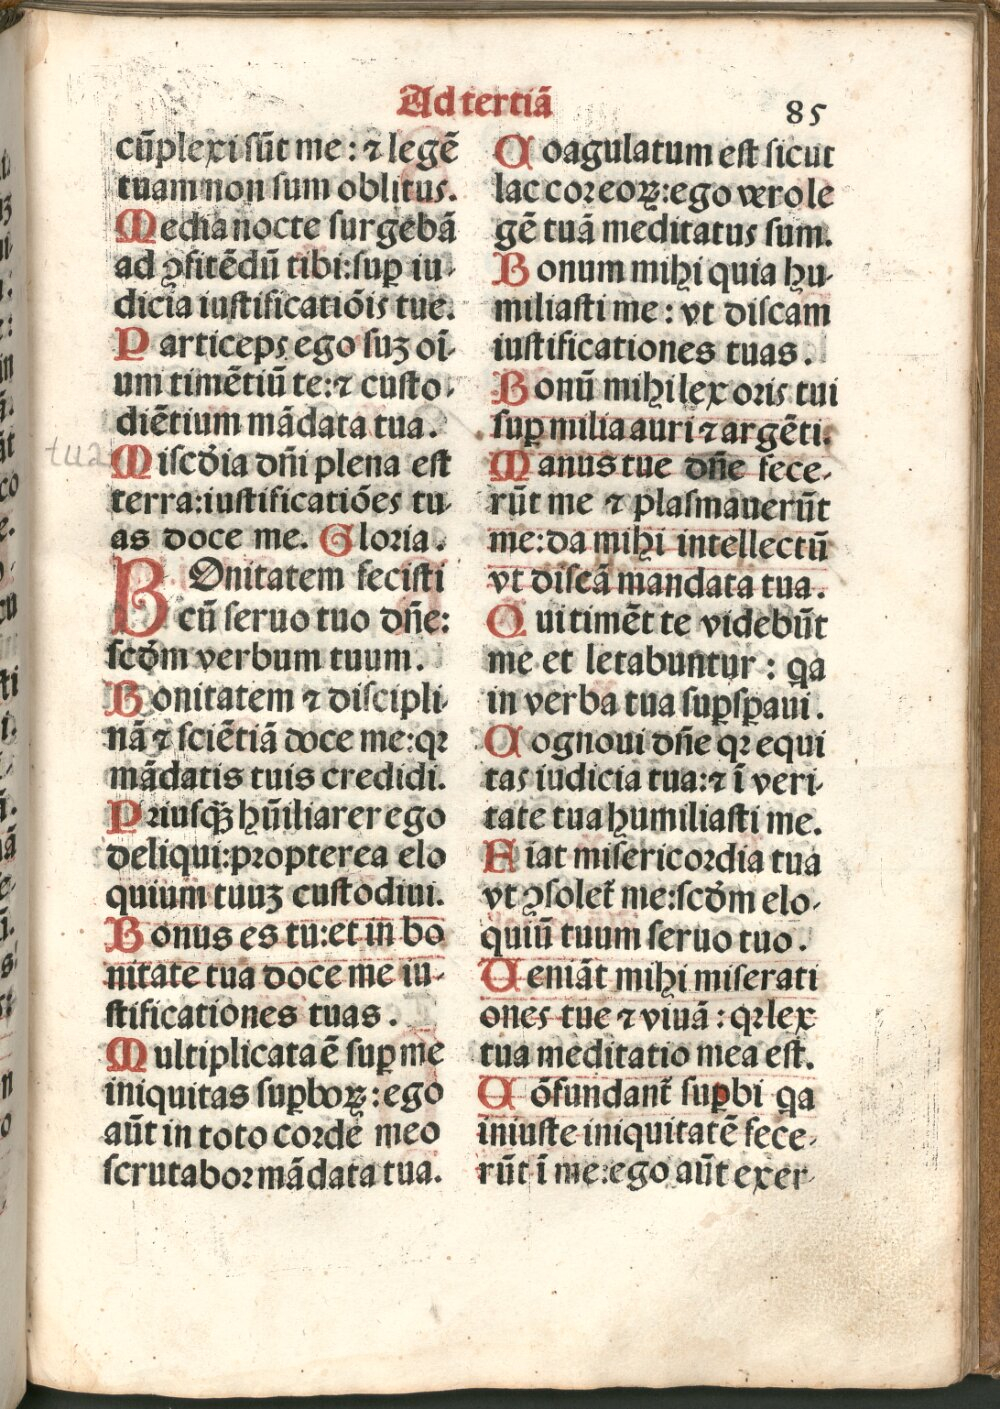 Ad tertiā
85
cūplexi sūt me: ⁊ legē
tuam non sum oblitus.
Media nocte surgebā
ad ꝯfitēdū tibi: suꝑ iu-
dicia iustificatiōis tue.
Particeps ego suꝫ oī-
um timētiū te: ⁊ custo-
diētium mādata tua.
tua
Miscďia dn̄i plena est
terra: iustificatiōes tu-
as doce me. Gloria.
BOnitatem fecisti
cū seruo tuo dn̄e:
scďm verbum tuum.
Bonitatem ⁊ discipli-
nā ⁊ sciētiā doce me: qꝛ
mādatis tuis credidi.
Priusqꝫ̄ hūiliarer ego
deliqui: propterea elo
quium tuuꝫ custodiui.
Bonus es tu: et in bo
nitate tua doce me iu-
stificationes tuas.
Multiplicata ē suꝑ me
iniquitas suꝑboꝝ: ego
aūt in toto corde meo
scrutabor mādata tua.
Coagulatum est sicut
lac cor eoꝝ: ego vero le
gē tuā meditatus sum.
Bonum mihi quia hu-
miliasti me: vt discam
iustificationes tuas.
Bonū mihi lex oris tui
suꝑ milia auri ⁊ argēti.
Manus tue dn̄e fece-
rūt me ⁊ plasmauerūt
me: da mihi intellectū
vt discā mandata tua.
Qui timēt te videbūt
me et letabuntur: qa
in verba tua suꝑsꝑaui.
Cognoui dn̄e qꝛ equi
tas iudicia tua: ⁊ ī veri-
tate tua humiliasti me.
Fiat misericordia tua
vt ꝯsolet̄ me: scďm elo-
quiū tuum seruo tuo.
Veniāt mihi miserati
ones tue ⁊ viuā: qꝛ lex
tua meditatio mea est.
Cōfundant̄ suꝑbi qa
iniuste iniquitatē fece-
rūt ī me: ego aūt exer-